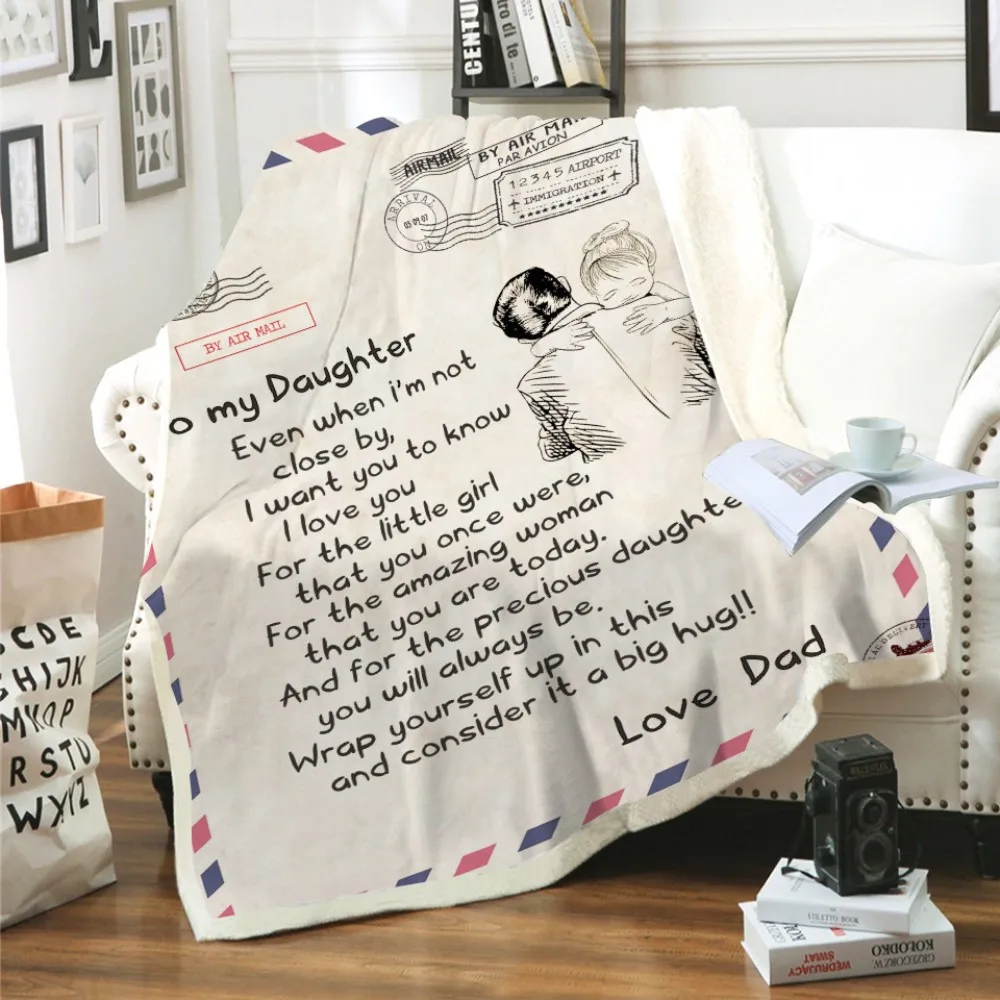 E
CENTU
AIRMAIL
BY AIR MA
PAR AVION
12345 AIRPORT
IMMIGRATION
ARRIVAL
BY AIR MAIL
o my Daughter
Even when i'm not
close by,
I want you to know
I love you
For the little girl
that you once were,
For the amazing woman
that you are today.
And for the precious daughte
you will always be.
Wrap yourself up in this
and consider it a big hug!!
Love Dad
CDE
HIJK
MNOP
RSTU
WXYZ
BOOK
GRZEGORZ W. KOŁODKO
WĘDRUJĄCY
ŚWIAT